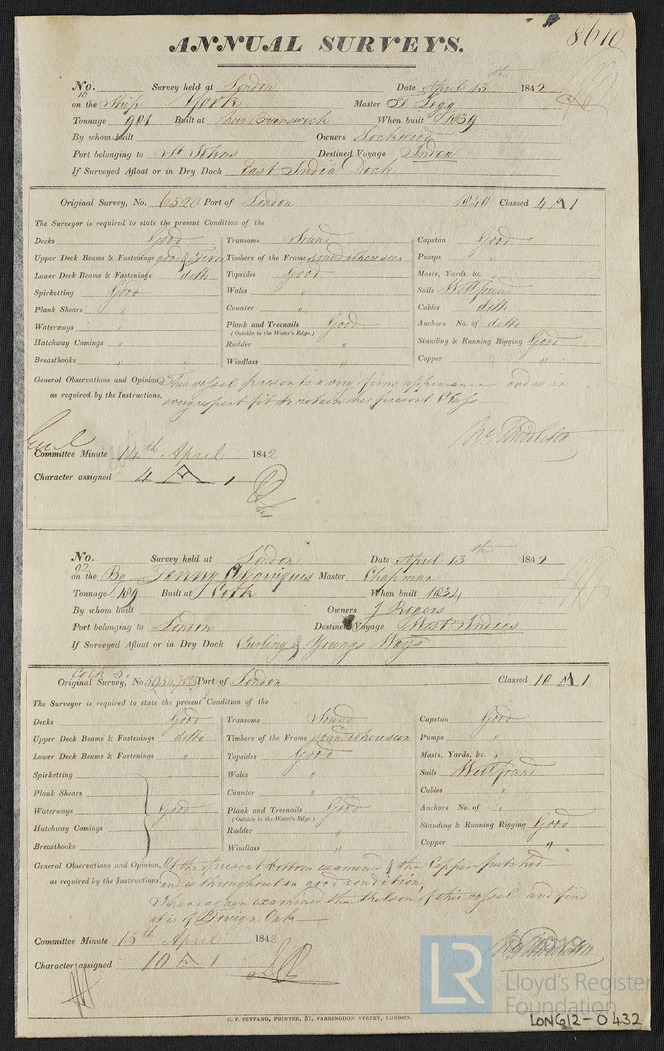 8610
ANNUAL SURVEYS.
No. 16 Survey held at London Date April 13th 1842
on the Ship York Master J Legg
Tonnage 901 Built at New Brunswick When built 1839
By whom built Owners Lockwood
Port belonging to St Johns Destined Voyage India
If Surveyed Afloat or in Dry Dock East India Dock
Original Survey, No. 6520 Port of London 1840 Classed 4 A 1
The Surveyor is required to state the present Condition of the
Decks Good Transoms Sound Capstan Good
Upper Deck Beams & Fastenings Timbers of the Frame Pumps "
Lower Deck Beams & Fastenings ditto Topsides Good Masts, Yards, &c.
Spirketting Good Wales " Sails Well found
Plank Shears " Counter " Cables ditto
Waterways " Plank and Treenails Good Anchors No. of ditto
(Outside to the Water's Edge.)
Hatchway Comings " Rudder " Standing & Running Rigging Good
Breasthooks " Windlass " Copper "
General Observations and Opinion, This vessel presents a very firm appearance and is in
as required by the Instructions, every respect fit to retain her present Class
Committee Minute 14th April 1842
Character assigned 4 A 1
No. 92 Survey held at London Date April 13th 1842
on the Bg Jenny Master Chapman
Tonnage 189 Built at Cork When built 1834
By whom built Owners J Rogers
Port belonging to London Destined Voyage West Indies
If Surveyed Afloat or in Dry Dock Curling & Youngs Ways
Original Survey, No. Port of London Classed 10 A 1
The Surveyor is required to state the present Condition of the
Decks Good Transoms Sound Capstan Good
Upper Deck Beams & Fastenings ditto Timbers of the Frame Pumps "
Lower Deck Beams & Fastenings " Topsides Good Masts, Yards, &c. "
Spirketting Wales " Sails Well found
Plank Shears Counter " Cables "
Waterways Good Plank and Treenails Good Anchors No. of "
(Outside to the Water's Edge.)
Hatchway Comings Rudder " Standing & Running Rigging Good
Breasthooks Windlass " Copper "
General Observations and Opinion, At the present bottom examined & the Copper patched
as required by the Instructions, and is throughout in good condition,
I have again examined the keelson of this vessel and find
it is of Foreign Oak
Committee Minute 15th April 1842
Character assigned 10 A 1
C. F. SEYFANG, PRINTER, 57, FARRINGDON STREET, LONDON.
LR
© 2019
Lloyd's Register
Foundation
LON612-0432